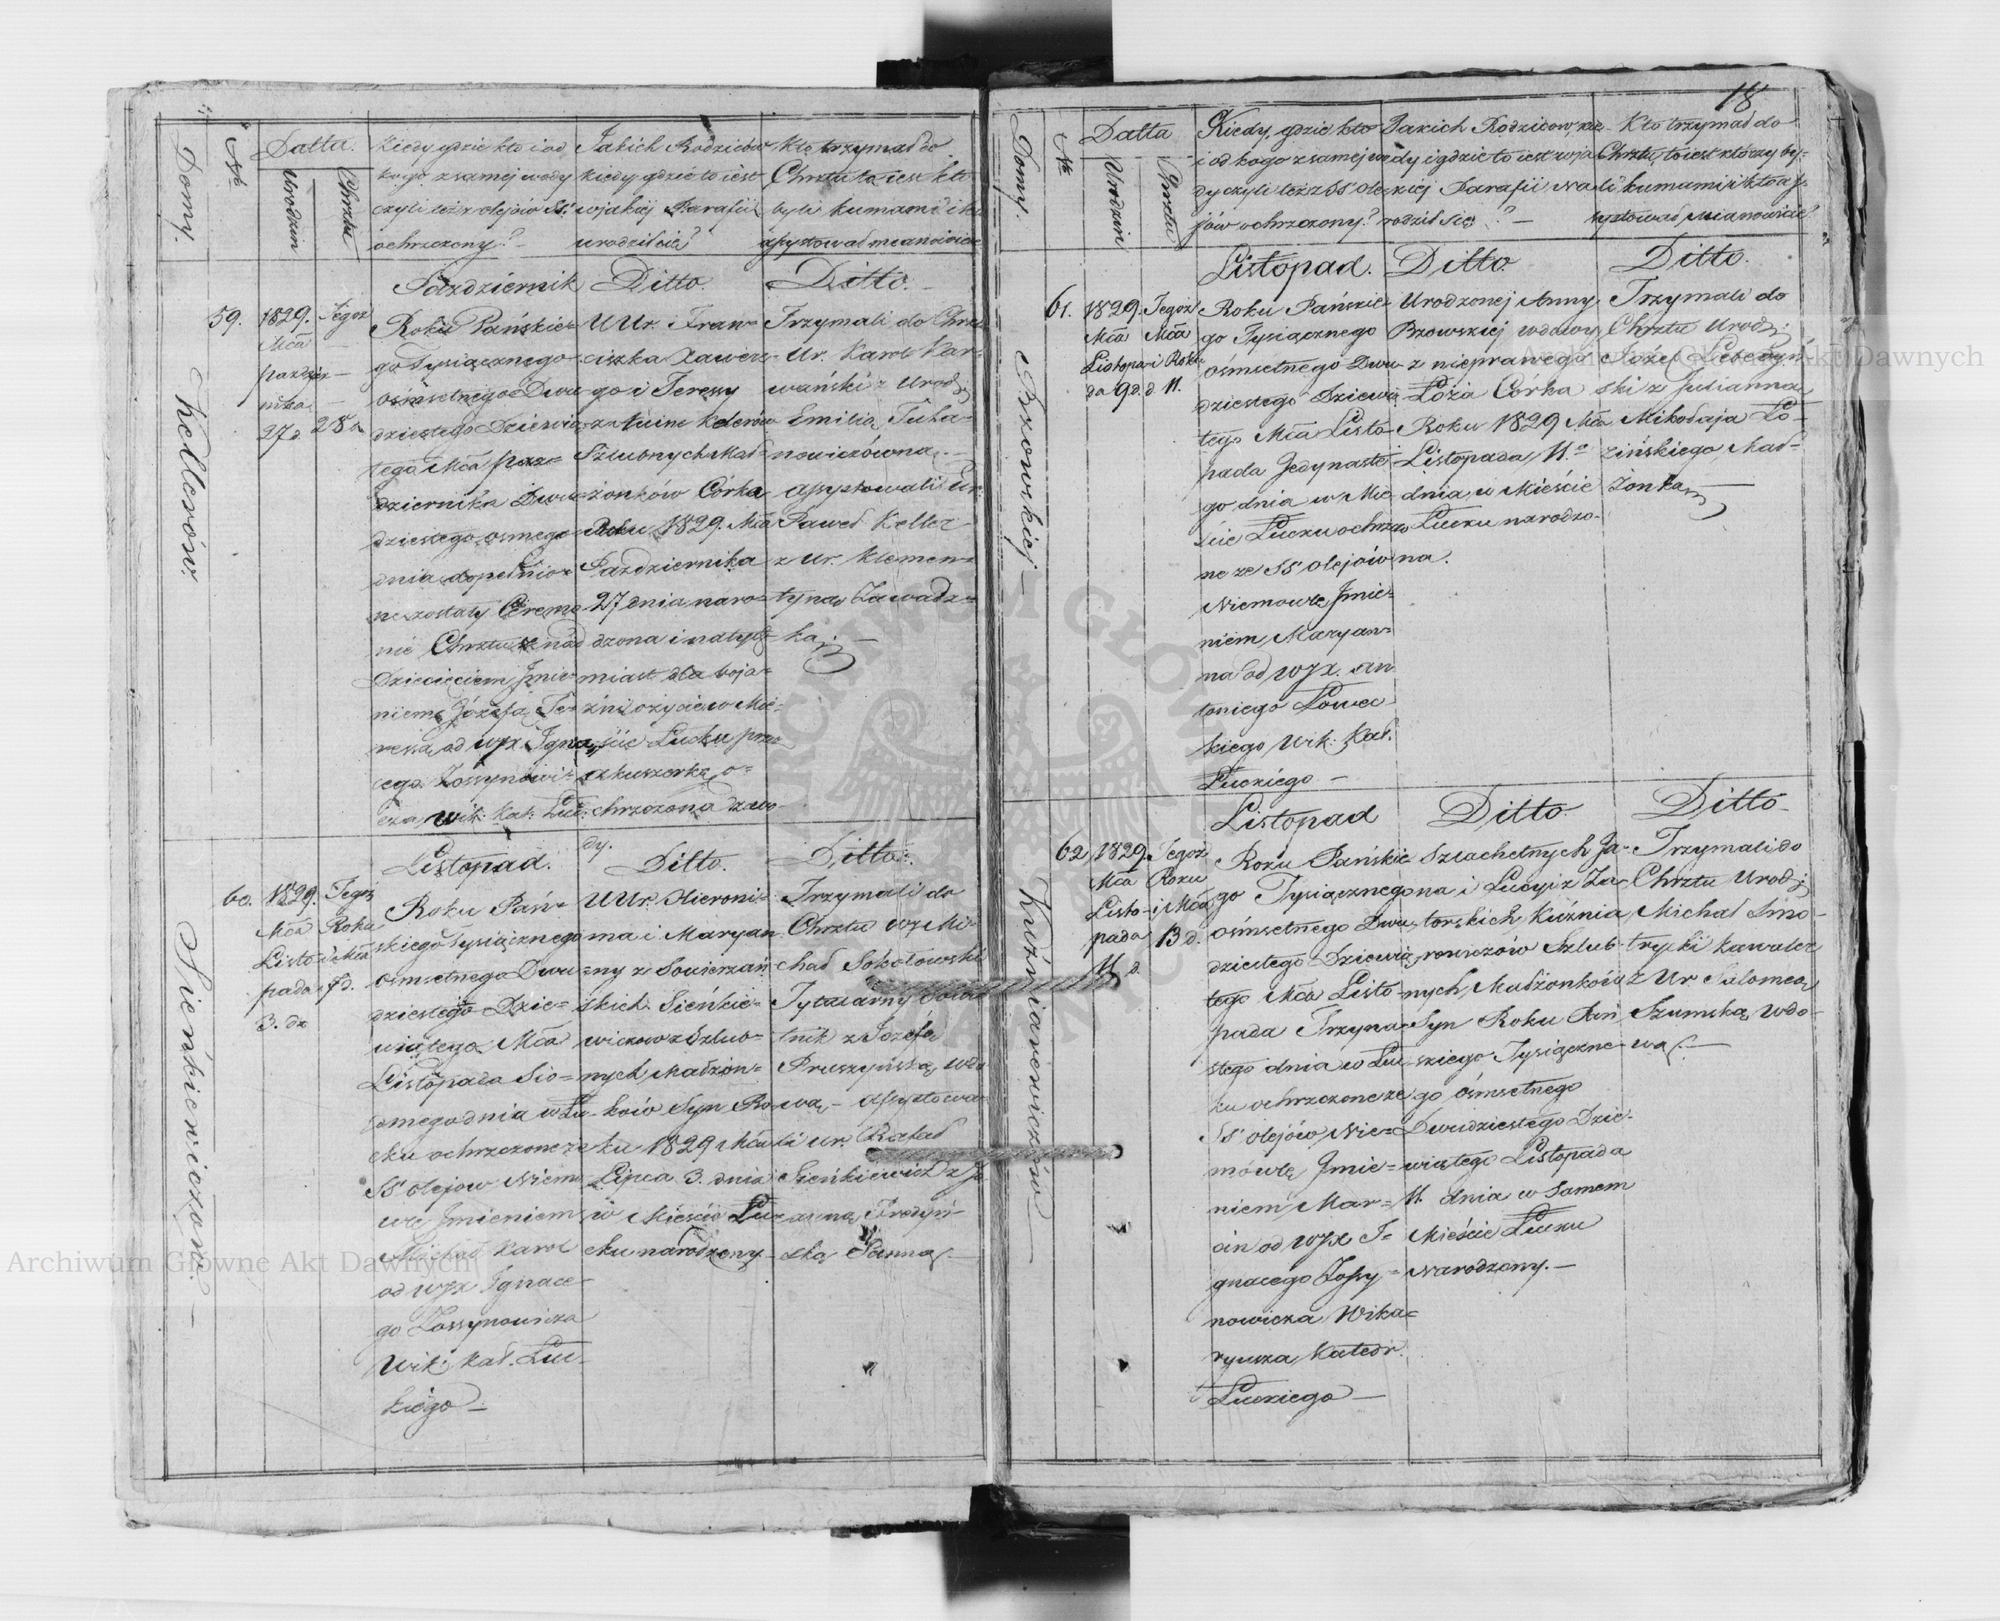 Domy.
№
Datta.
Urodzin
Chrztu
Kiedy gdzie kto i od
kogo z samej wody
czyli też z olejów SS.
ochrzczony?
Jakich Rodziców
kiedy gdzie to jest
w jakiej Parafii
urodził się?
Kto trzymał do
Chrztu to jest kto
byli kumami i kto
assystował mianowicie
Kellerów
59.
1829.
Mca
paździer-
nika
27 d.
Tegoż
28 d.
Październik
Roku Pańskie-
go tysiącznego
ośmsetnego Dwu
dziestego Dziewią-
tego Mca paź-
dziernika Dwu-
dziestego osmego
dnia dopełnio-
ne zostały Ceremo
nie Chrztu S. nad
Dziecięciem Imie-
niem Józefa Te-
ressa od WJX. Igna-
cego Zossynowi-
cza Wik: Kat: Łuc:
Ditto.
UUr. Fran-
ciszka Xawere-
go i Teressy
Kelerów
Szlubnych Mał-
żonków Córka
Roku 1829. Mca
Października
27 dnia naro-
dzona i natych
miast dla boja-
źni o życie w Mie-
ście Łucku prze
akuszerkę o-
chrzczona z wo-
dy.
Ditto.
Trzymali do Chrztu
Ur. Karol Kar-
wański z Urod:
Emilią Tucha-
nowiczówną.
assystowali Ur:
Paweł Keller
z Ur. Klemen-
tyną Zawadz-
ką. —
Sieńkiewiczów. —
60.
1829.
Mca
Listo-
pada
3. d.
Tegoż
Roku
i Mca
7 d.
Listopad.
Roku Pań-
skiego tysiącznego
ośmsetnego Dwu
dziestego Dzie-
wiątego Mca
Listopada Sió-
dmego dnia w Łu-
cku ochrzczone ze
SS olejow Niemo
wlę Imieniem
Michał Karol
od WJX Ignace-
go Zossynowicza
Wik: Kat. Łuc-
kiego —
Ditto.
UUr. Hieroni-
ma i Maryan
ny z Sowierzań
skich Sieńkie-
wiczow z Szlub-
nych Małżon-
ków Syn Ro-
ku 1829 Mca
Lipca 3. dnia
w Mieście Łu-
cku narodzony
Ditto.
Trzymali do
Chrztu WJ Mi-
chał Sokołowski
Tytularny Sowie
tnik z Józefą
Pruszyńską wdo
wą — assystowa-
li Ur. Rafał
Sieńkiewicz z Ju
Panną. —
18
Domy.
№
Datta
Urodzin
Chrztu
Kiedy, gdzie kto
i od kogo z samej wo
dy czyli też z SS ole-
jów ochrzczony?
Jakich Rodziców, kie
dy i gdzie to jest w ja
kiej Parafii
rodził się? —
Kto trzymał do
Chrztu, to jest którzy by-
li kumami i kto as-
systował, mianowicie?
Brzowskiej —
61.
1829.
Mca
Listopa-
da 9 d.
Tegoż
Mca
i Roku
d 11.
Listopad.
Roku Pańskie-
go Tysiącznego
ośmsetnego Dwu
dziestego Dziewią
tego Mca Listo-
pada Jedynaste-
go dnia w Mie
ście Łucku ochrzczo
ne ze SS olejów
Niemowlę Imie-
niem Maryan-
na od WJX. An
toniego Łowec
kiego Wik: Kat.
Łuckiego —
Ditto.
Urodzonej Anny
Brzowskiej wdowy
z nieprawego
Łoża Córka
Roku 1829 Mca
Listopada 11.o
dnia w Mieście
Łucku narodzo-
na.
Ditto.
Trzymali do
Chrztu Urodz:
Józef Lebedyń
ski z Julianną
Mikołaja Ło-
zińskiego Mał-
żonką —
Kuźmiarewiczów —
62
1829.
Mca
Listo-
pada
11 d.
Tegoż
Roku
i Mca
13 d.
Listopad
Roku Pańskie
go Tysiącznego
ośmsetnego Dwu
dziestego Dziewią
tego Mca Listo-
pada Trzyna-
stego dnia w Łu-
cku ochrzczone ze
SS olejów Nie-
mówlę Imie-
niem Mar-
cin od WJX I-
gnacego Zossy-
nowicza Wika-
ryusza Katedr.
Łuckiego —
Ditto.
Szlachetnych Ja-
na i Lucyi z Za-
torskich Kuźmia
rewiczów Szlub-
nych Małżonków
Syn Roku Pań
skiego Tysiączne-
go ośmsetnego
Dwódziestego Dzie-
wiątego Listopada
11. dnia w Samem
Mieście Łucku
Narodzony. —
Ditto
Trzymali do
Chrztu Urodz:
Michał Dmo-
trycki Kawaler
z Ur Salomeą
Szumską wdo-
wą. —
Archiwum Główne Akt Dawnych
Archiwum Główne Akt Dawnych